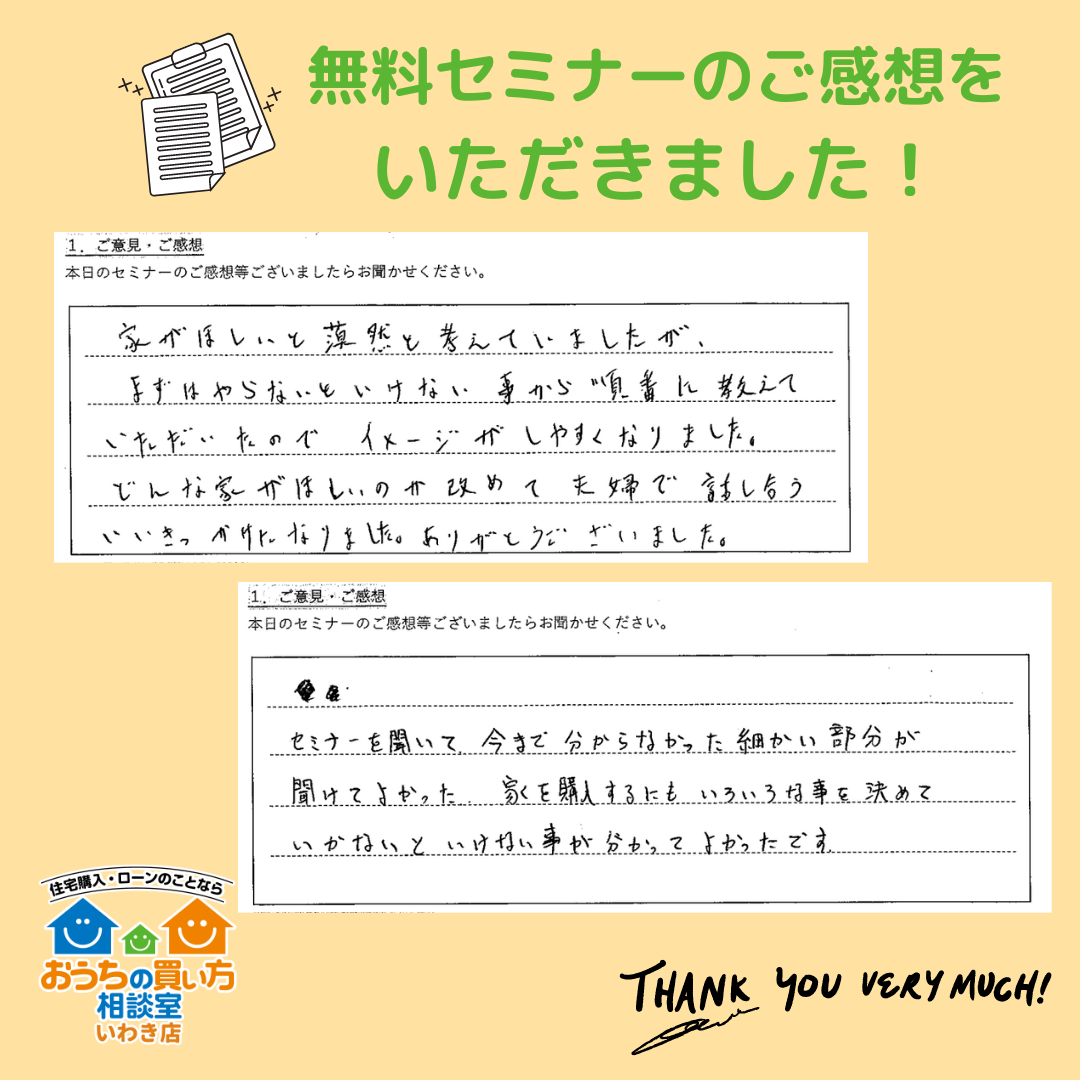 無料セミナーのご感想を
いただきました！
1．ご意見・ご感想
本日のセミナーのご感想等ございましたらお聞かせください。
家がほしいと漠然と考えていましたが、
まずはやらないといけない事から順番に教えて
いただいたので イメージがしやすくなりました。
どんな家がほしいのか改めて夫婦で話し合う
いいきっかけになりました。ありがとうございました。
1．ご意見・ご感想
本日のセミナーのご感想等ございましたらお聞かせください。
セミナーを聞いて、今まで分からなかった細かい部分が
聞けてよかった。家を購入するにもいろいろな事を決めて
いかないといけない事が分かってよかったです。
住宅購入・ローンのことなら
おうちの買い方
相談室
いわき店
THANK YOU VERY MUCH!